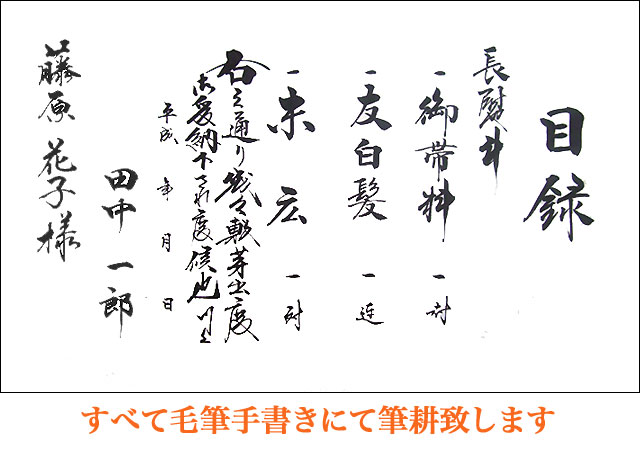 目録
長熨斗
一 御帯料 一封
一 友白髪 一連
一 末広 一対
右之通り幾久敷芽出度
御受納下され度候也
平成 年 月 日
田中 一郎
藤原 花子様
すべて毛筆手書きにて筆耕致します